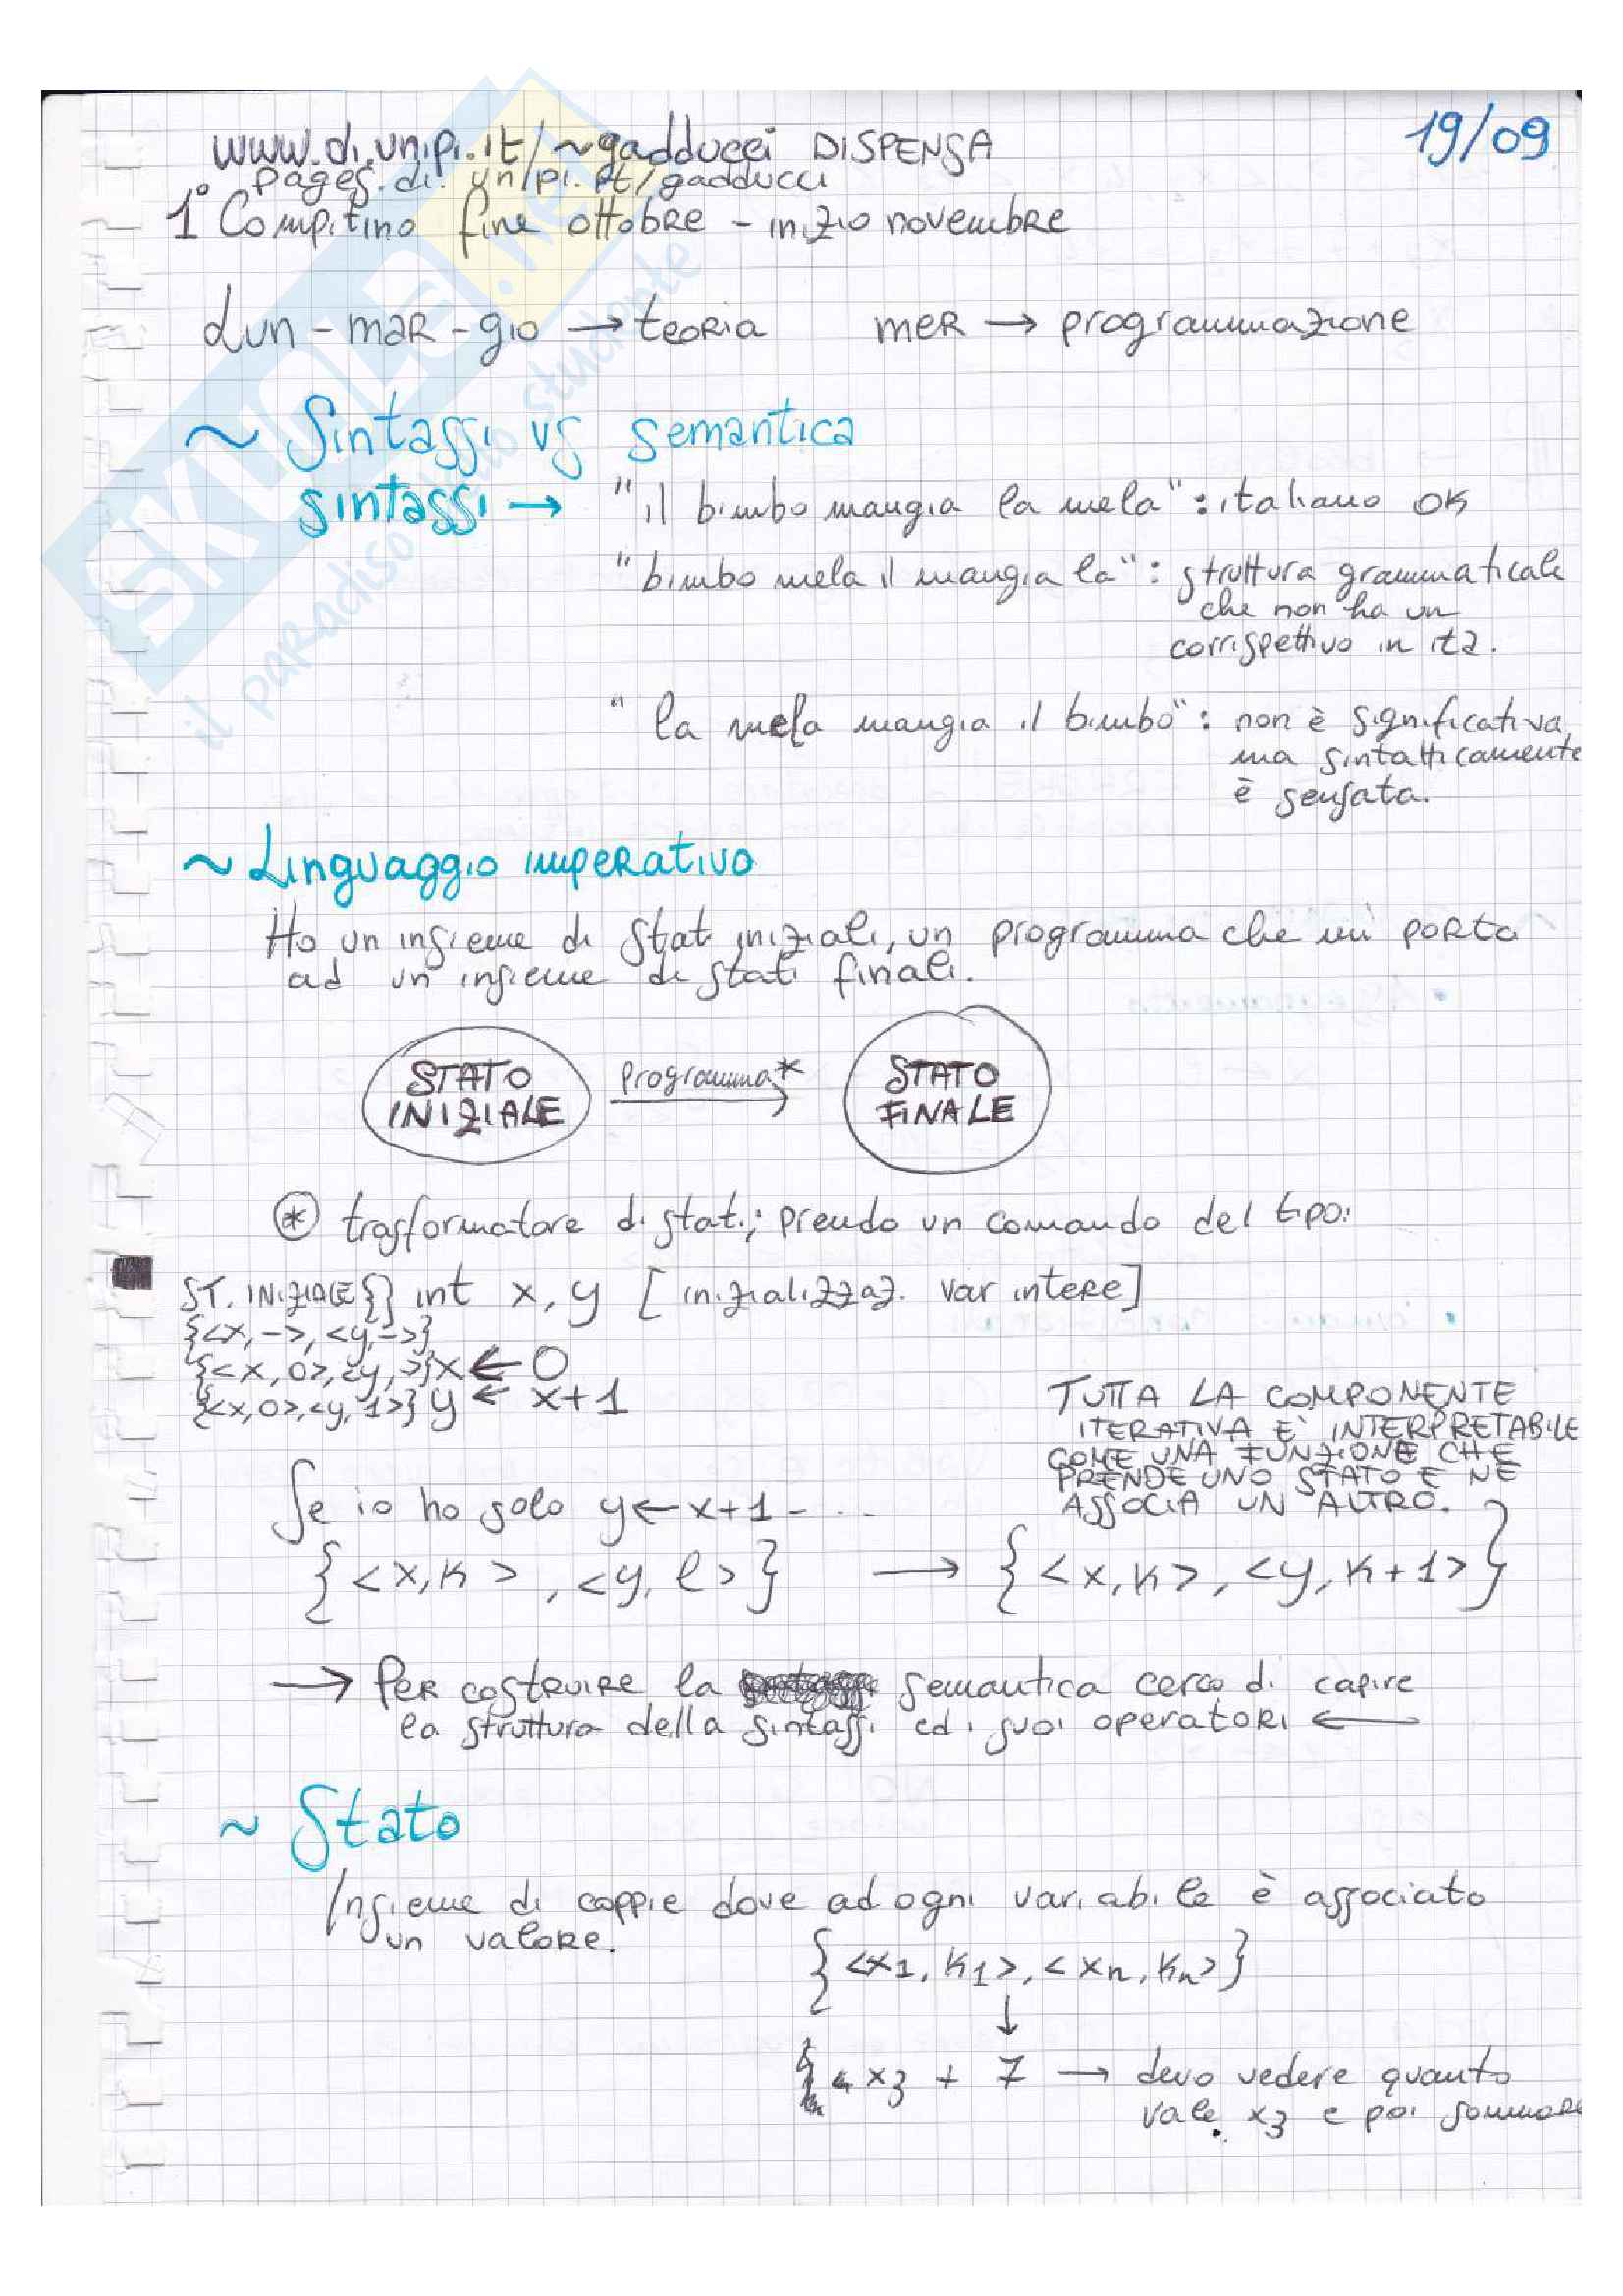 19/09
www.di.unipi.it/~gadducci DISPENSA
pages.di.unipi.it/gadducci
1° Compitino fine ottobre - inizio novembre
Lun - mar - gio → teoria mer → programmazione
~ Sintassi vs semantica
sintassi → "il bimbo mangia la mela": italiano OK
"bimbo mela il mangia la": struttura grammaticale
che non ha un
corrispettivo in ita.
"la mela mangia il bimbo": non è significativa,
ma sintatticamente
è sensata.
~ Linguaggio imperativo
Ho un insieme di stati iniziali, un programma che mi porta
ad un insieme di stati finali.
STATO
INIZIALE
programma*
STATO
FINALE
⊛ trasformatore di stati; prendo un comando del tipo:
ST. INIZIALE {} int x, y [inizializzaz. var intere]
{<x,->, <y,->}
{<x,0>,<y,>} x ← 0
{<x,0>,<y,1>} y ← x+1
TUTTA LA COMPONENTE
ITERATIVA E' INTERPRETABILE
COME UNA FUNZIONE CHE
PRENDE UNO STATO E NE
ASSOCIA UN ALTRO.
Se io ho solo y ← x+1 - ...
{<x,k>, <y,l>} → {<x,k>, <y,k+1>}
→ Per costruire la semantica cerco di capire
la struttura della sintassi ed i suoi operatori ←
~ Stato
Insieme di coppie dove ad ogni variabile è associato
un valore.
{<x1, k1>, <xn, kn>}
↓
x3 + 7 → devo vedere quanto
vale x3 e poi sommare
SKUOLA.net
il paradiso dello studente